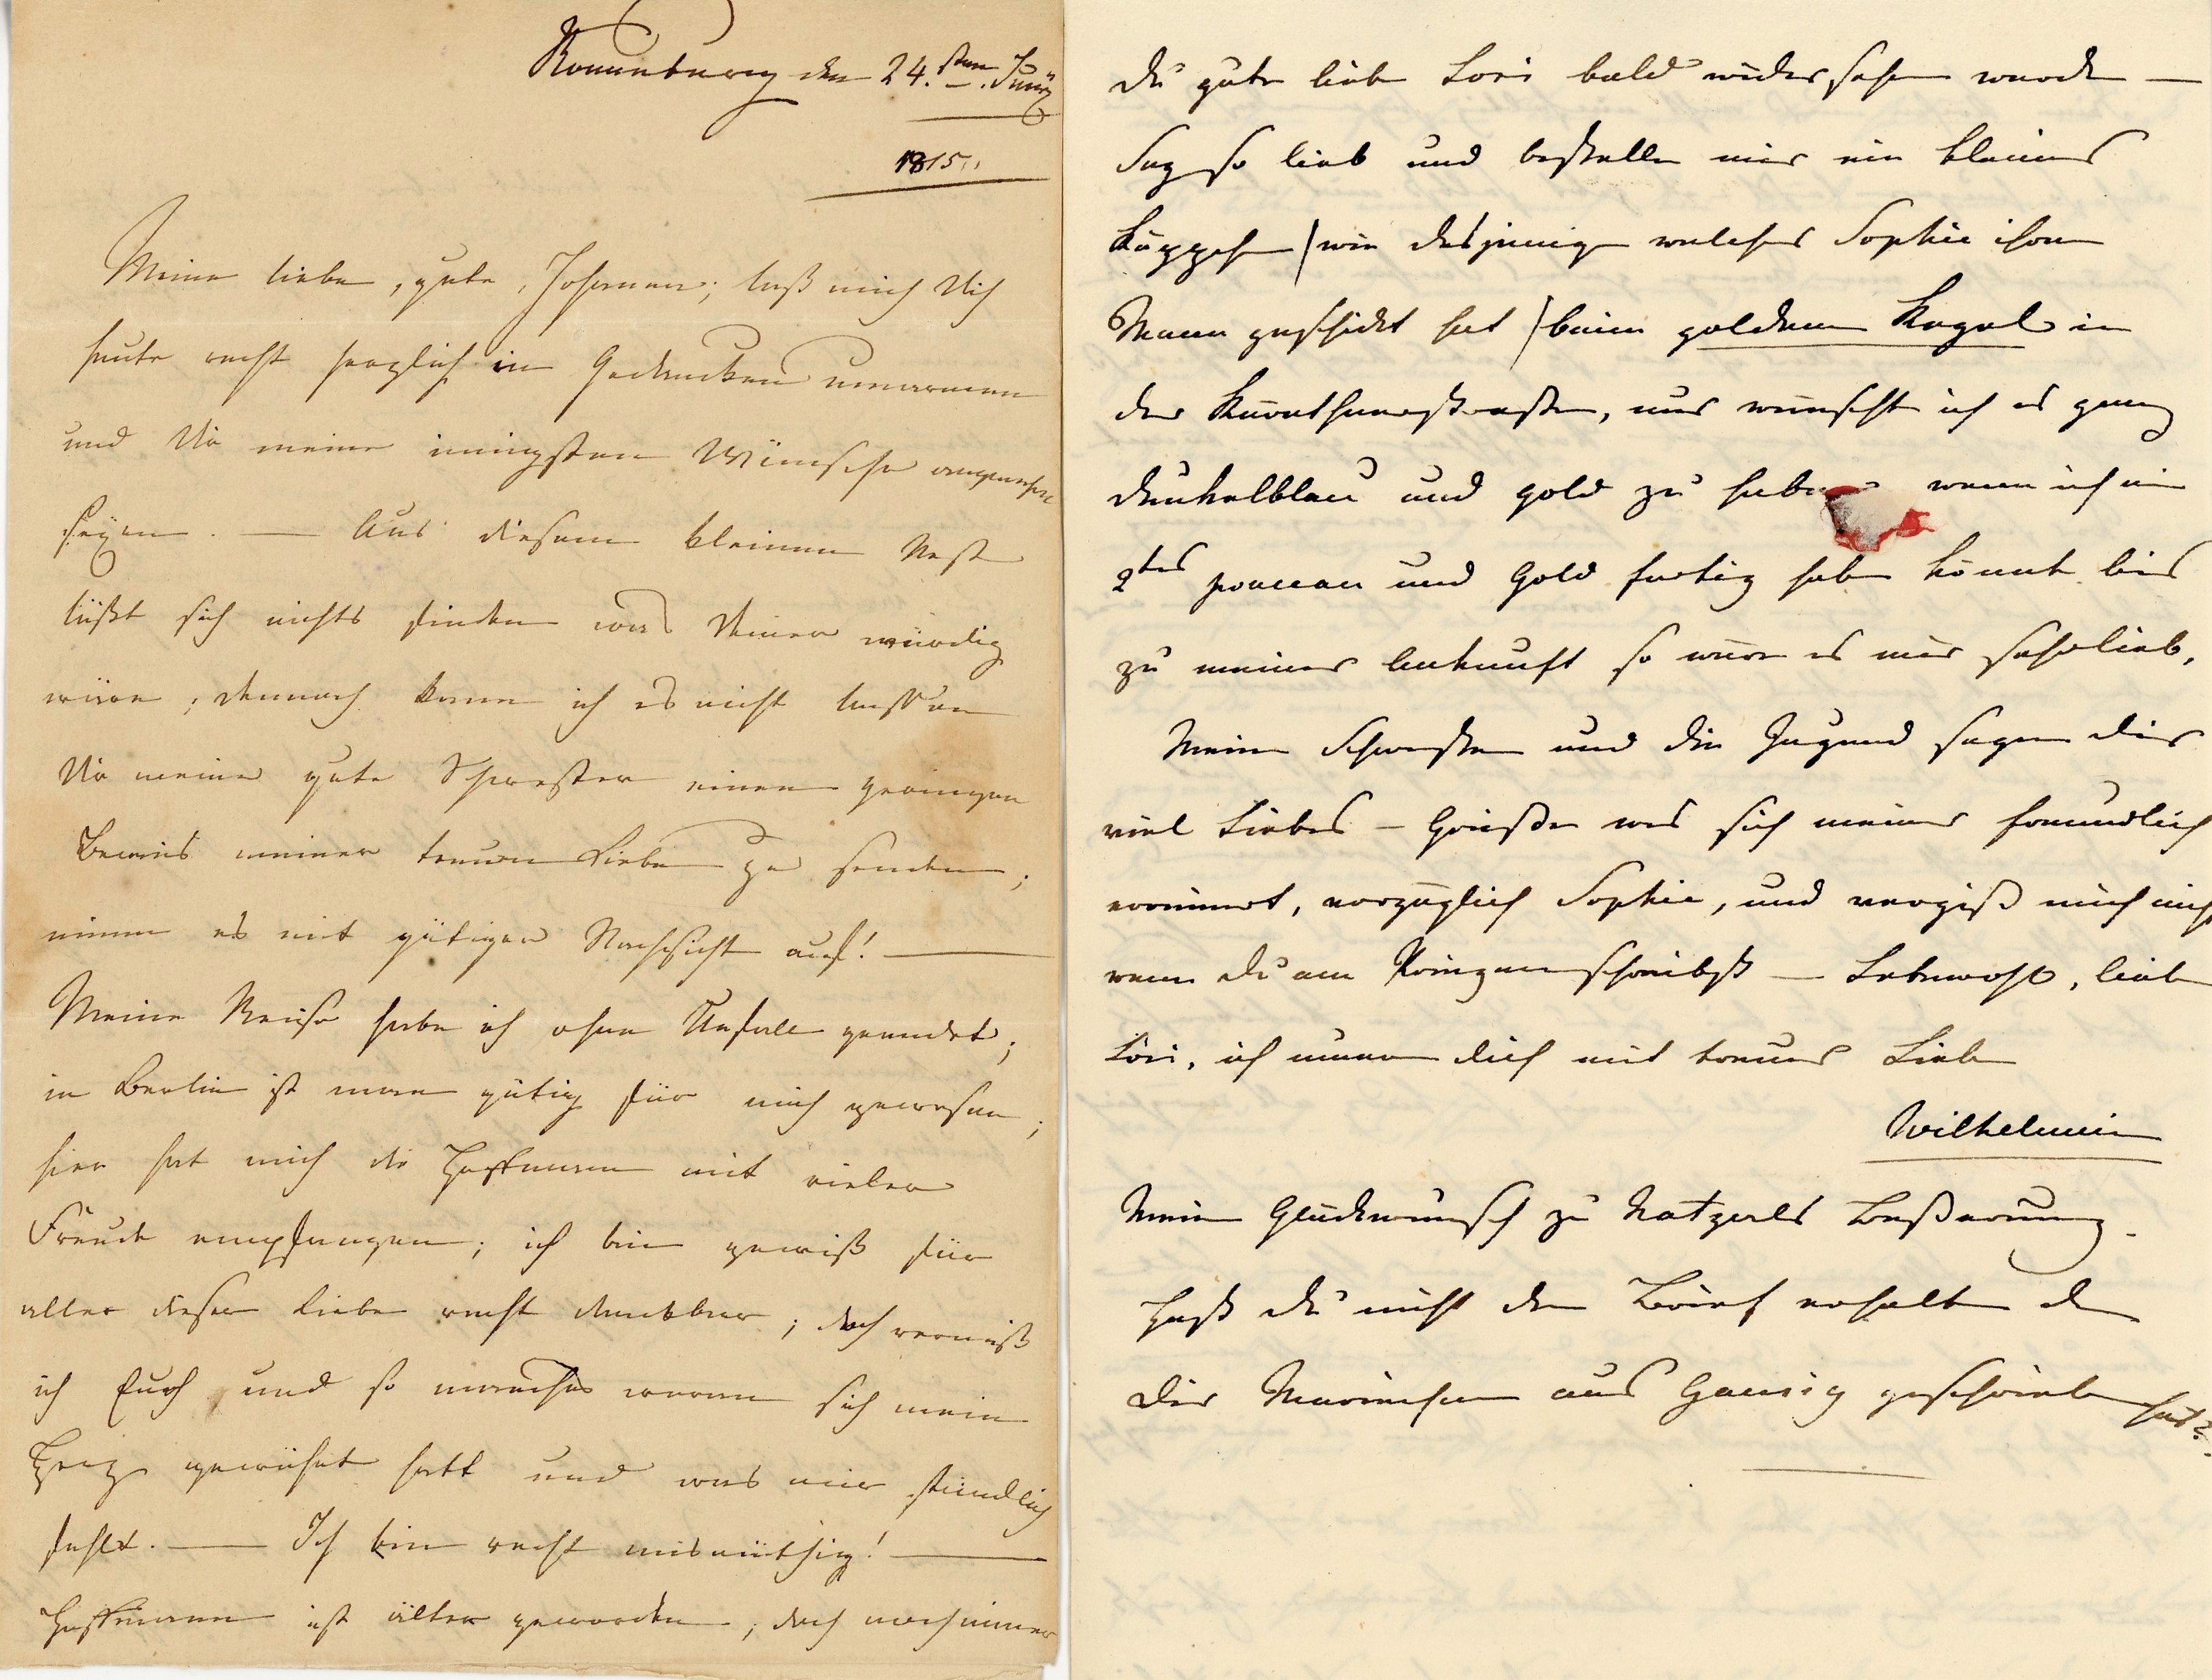 Ronneburg den 24.sten Juny
1815.
Meine liebe, gute, Johanna; laß mich Dich
heute recht herzlich in Gedancken umarmen
und Dir meine innigsten Wünsche
seyen. — Aus diesem kleinen Nest
läßt sich nichts finden was Deiner würdig
wäre; dennoch kann ich es nicht lassen
Dir meine gute Schwester einen geringen
Beweis meiner treuen Liebe zu senden;
nimm es mit gütiger Nachsicht auf! —
Meine Reise habe ich ohne Unfall geendet;
in Berlin ist man gütig für mich gewesen;
hier hat mich die Hoffmann mit vieler
Freude empfangen; ich bin gewiß für
aller dieser Liebe recht danckbar; doch vermiß
ich Euch und so manches woran sich mein
Herz gewöhnt hatt und was mir stündlich
fehlt. — Ich bin recht mismüthig! —
Hoffmann ist älter geworden; doch noch immer
du gute liebe Lori bald wieder sehen werde —
Sey so lieb und bestelle mir ein kleines
Käppchen / wie dasjenige welches Sophie ihrem
Mann geschickt hat / beim goldenen Kegel in
der Kärnthnerstraße, nur wünscht ich es ganz
dunkelblau und gold zu haben wenn ich ein
2tes ponceau und Gold fertig haben könnte bis
zu meiner Ankunft so wäre es mir sehr lieb.
Meine Schwestern und die Jugend sagen dir
viel Liebes — Grüße was sich meiner freundlich
erinnert, vorzüglich Sophie, und vergiß mich nicht
wenn du am Prinzen schreibst — Lebewohl, liebe
Lori, ich umarme dich mit treuer Liebe
Wilhelmine
Meine Glückwünsche zu Beßerung.
Hast du nicht den Brief erhalten den
dir Marienchen aus geschrieben hat?